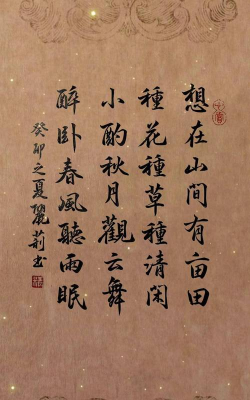 想在山間有亩田
種花種草種清闲
小酌秋月觀云舞
醉卧春風聽雨眠
癸卯之夏麗莉书